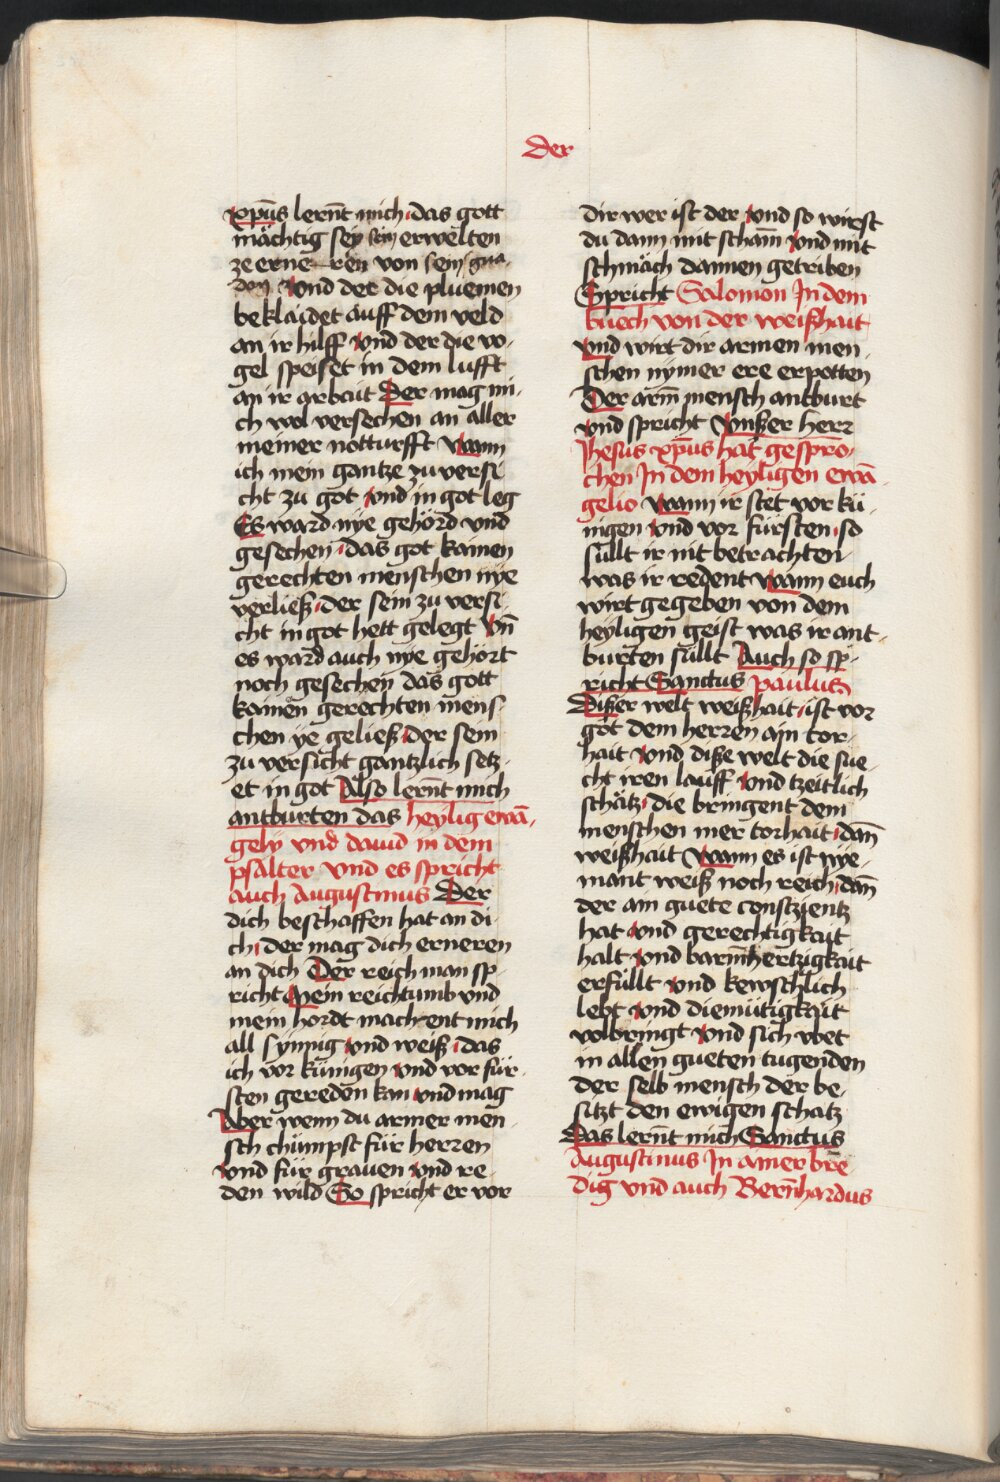 der
xpūs lernt̄ mich das gott
mächtig sey sein erwelten
ze erne ren von sein gna-
den Vnd der die pluemen
beklaidet auff dem veld
an ir hilff vnd der die vo-
gel speiset in dem lufft
an ir arbait Der mag mi-
ch wol versechen an aller
meiner notturfft wann
ich mein gantze zu versi-
cht zu got vnd in got leg
Es ward nye gehörd vnd
gesechen das got kainen
gerechten menschen nye
verließ der sein zu versi-
cht in got hett gelegt Vn̄
es ward auch nye gehört
noch gesechen das gott
kainen gerechten mens-
chen ye geließ der sein
zu versicht gantzlich setz-
et in got Also lernt̄ mich
antburten das heylig ewā-
gely vnd dauid in dem
psalter vnd es spricht
auch Augustinus Der
dich beschaffen hat an di-
ch der mag dich erneren
an dich Der reich man sp-
richt Mein reichtumb vnd
mein hordt machent mich
all synnig vnd weiß das
ich vor künigen vnd vor für-
sten gereden kan vnd mag
Aber wenn du armer men-
sch chümpst für herren
vnd für grauen vnd re-
den wild So spricht er vor
dir wer ist der vnd so wirst
du dann mit scham̄ vnd mit
schmäch dannen getriben
Spricht Salomon In dem
buech von der weißhait
vnd wirt dir armen men-
schen nymer ere erpotten
Der arm̄ mensch antburt
vnd spricht vnßer herr
Jhesus xpūs hat gespro-
chen In dem heyligen ewā-
gelio wann ir stet vor kü-
nigen vnd vor fürsten so
süllt ir nit betrachten
was ir redent wann euch
wirt gegeben von dem
heyligen geist was ir ant-
burten süllt Auch so sp-
richt Sanctus paulus
Dißer welt weißhait ist vor
got dem herren ain tor-
hait vnd diße welt die sue-
cht iren lauff vnd tzeitlich
schätz die bringent dem
menschen mer torhait dan̄
weißhait wann es ist nye-
mant weiß noch reich dan̄
der ain guete consczientz
hat vnd gerechtigkait
halt vnd barm̄hertzigkait
erfüllt vnd kewschlich
lebt vnd diemütigkait
volbringt vnd sich vbet
in allen gueten tugenden
der selb mensch der be-
sitzt den ewigen schatz
Das lernt̄ mich Sanctus
Augustinus In ainer bre-
dig vnd auch Bern̄hardus